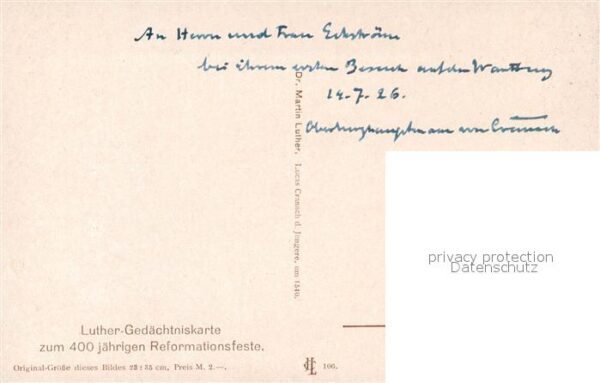 An Herrn und Frau Eckström
bei ihrem ersten Besuch auf der Wartburg
14.7.26.
Oberburghauptmann von Cranach
Dr. Martin Luther.
Lucas Cranach d. Jüngere, um 1540.
privacy protection
Datenschutz
Luther-Gedächtniskarte
zum 400 jährigen Reformationsfeste.
Original-Größe dieses Bildes 28 : 35 cm, Preis M. 2.—.
166.